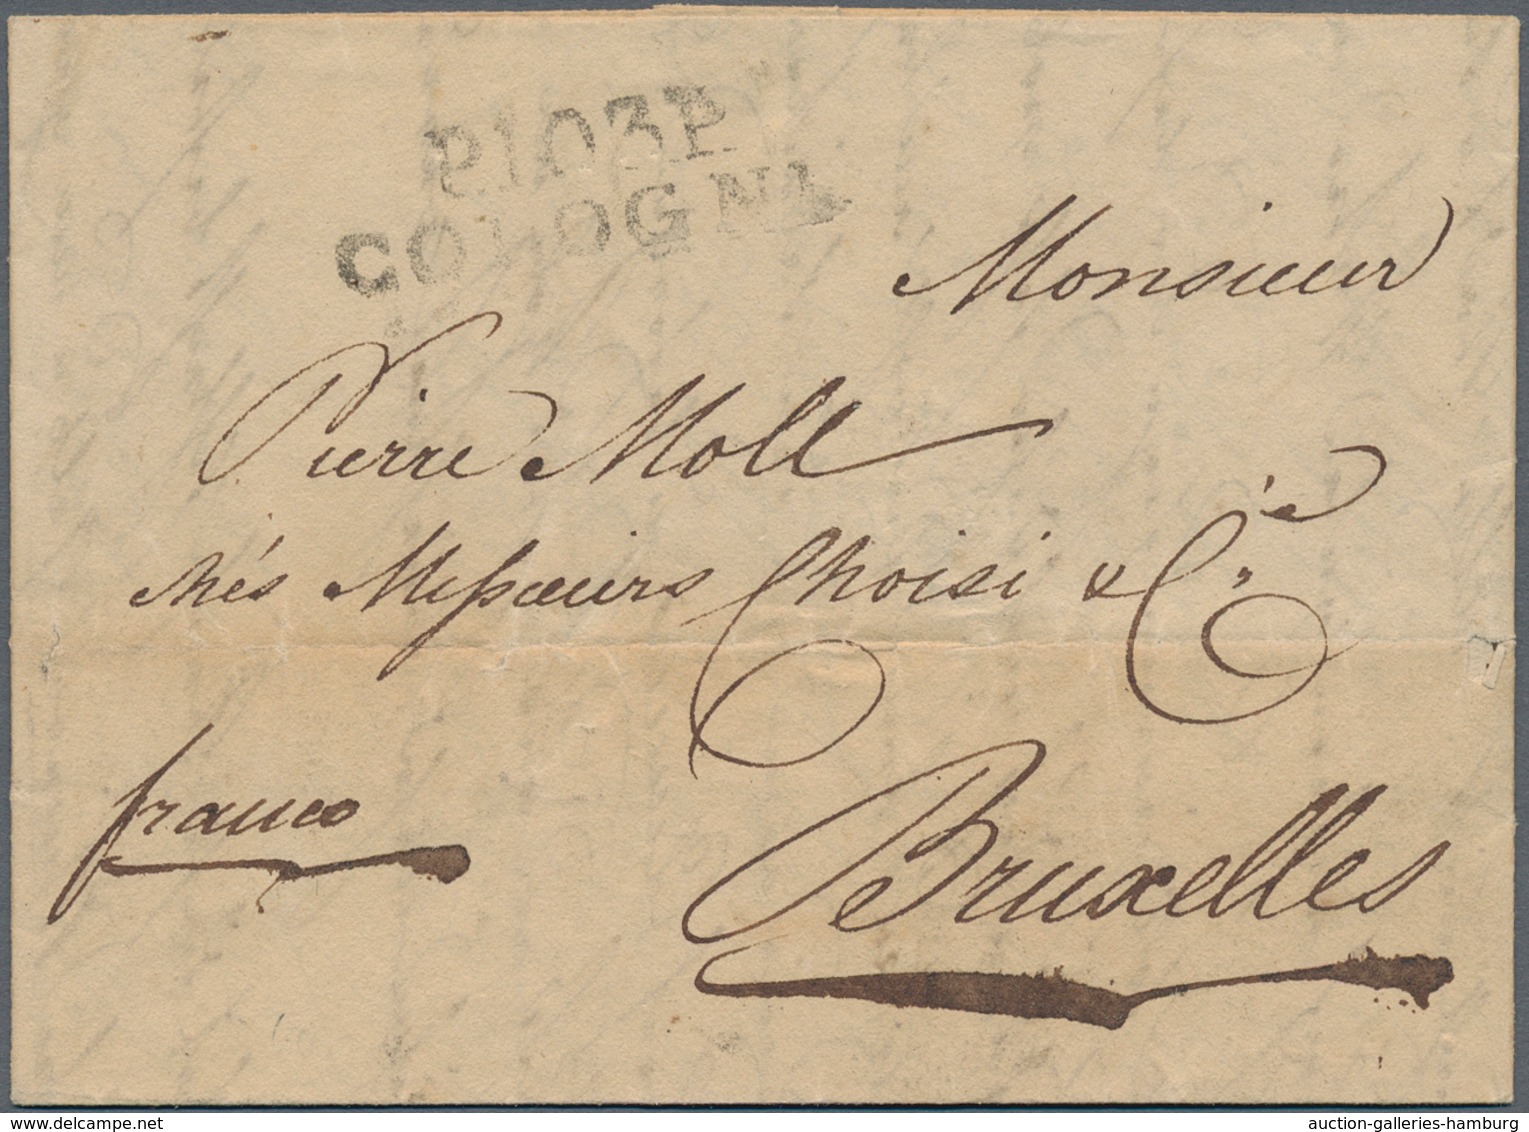 P103P
COLOGNE
Monsieur
Pierre Moll
chés Messieurs Choisi & C.ie
franco
Bruxelles
delcampe.net
auction-galleries-hamburg